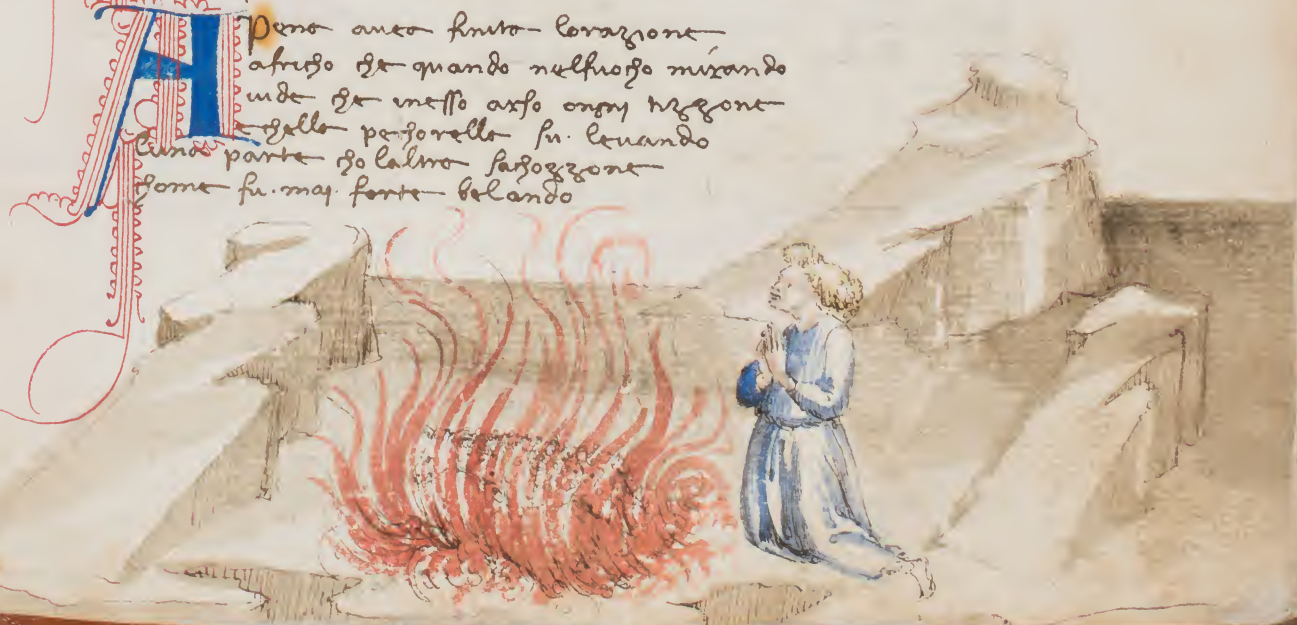 Apena avea finito lorazione
africho che quando nelfuocho mirando
vide che inesso arso ongni tizzone
echella pechorella su levando
luna parte cho laltra sachozzone
chome fu mai forte belando